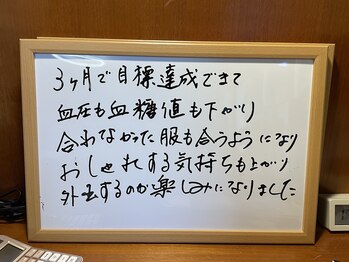 3ヶ月で目標達成できて
血圧も血糖値も下がり
合わなかった服も合うようになり
おしゃれする気持ちも上がり
外出するのが楽しみになりました